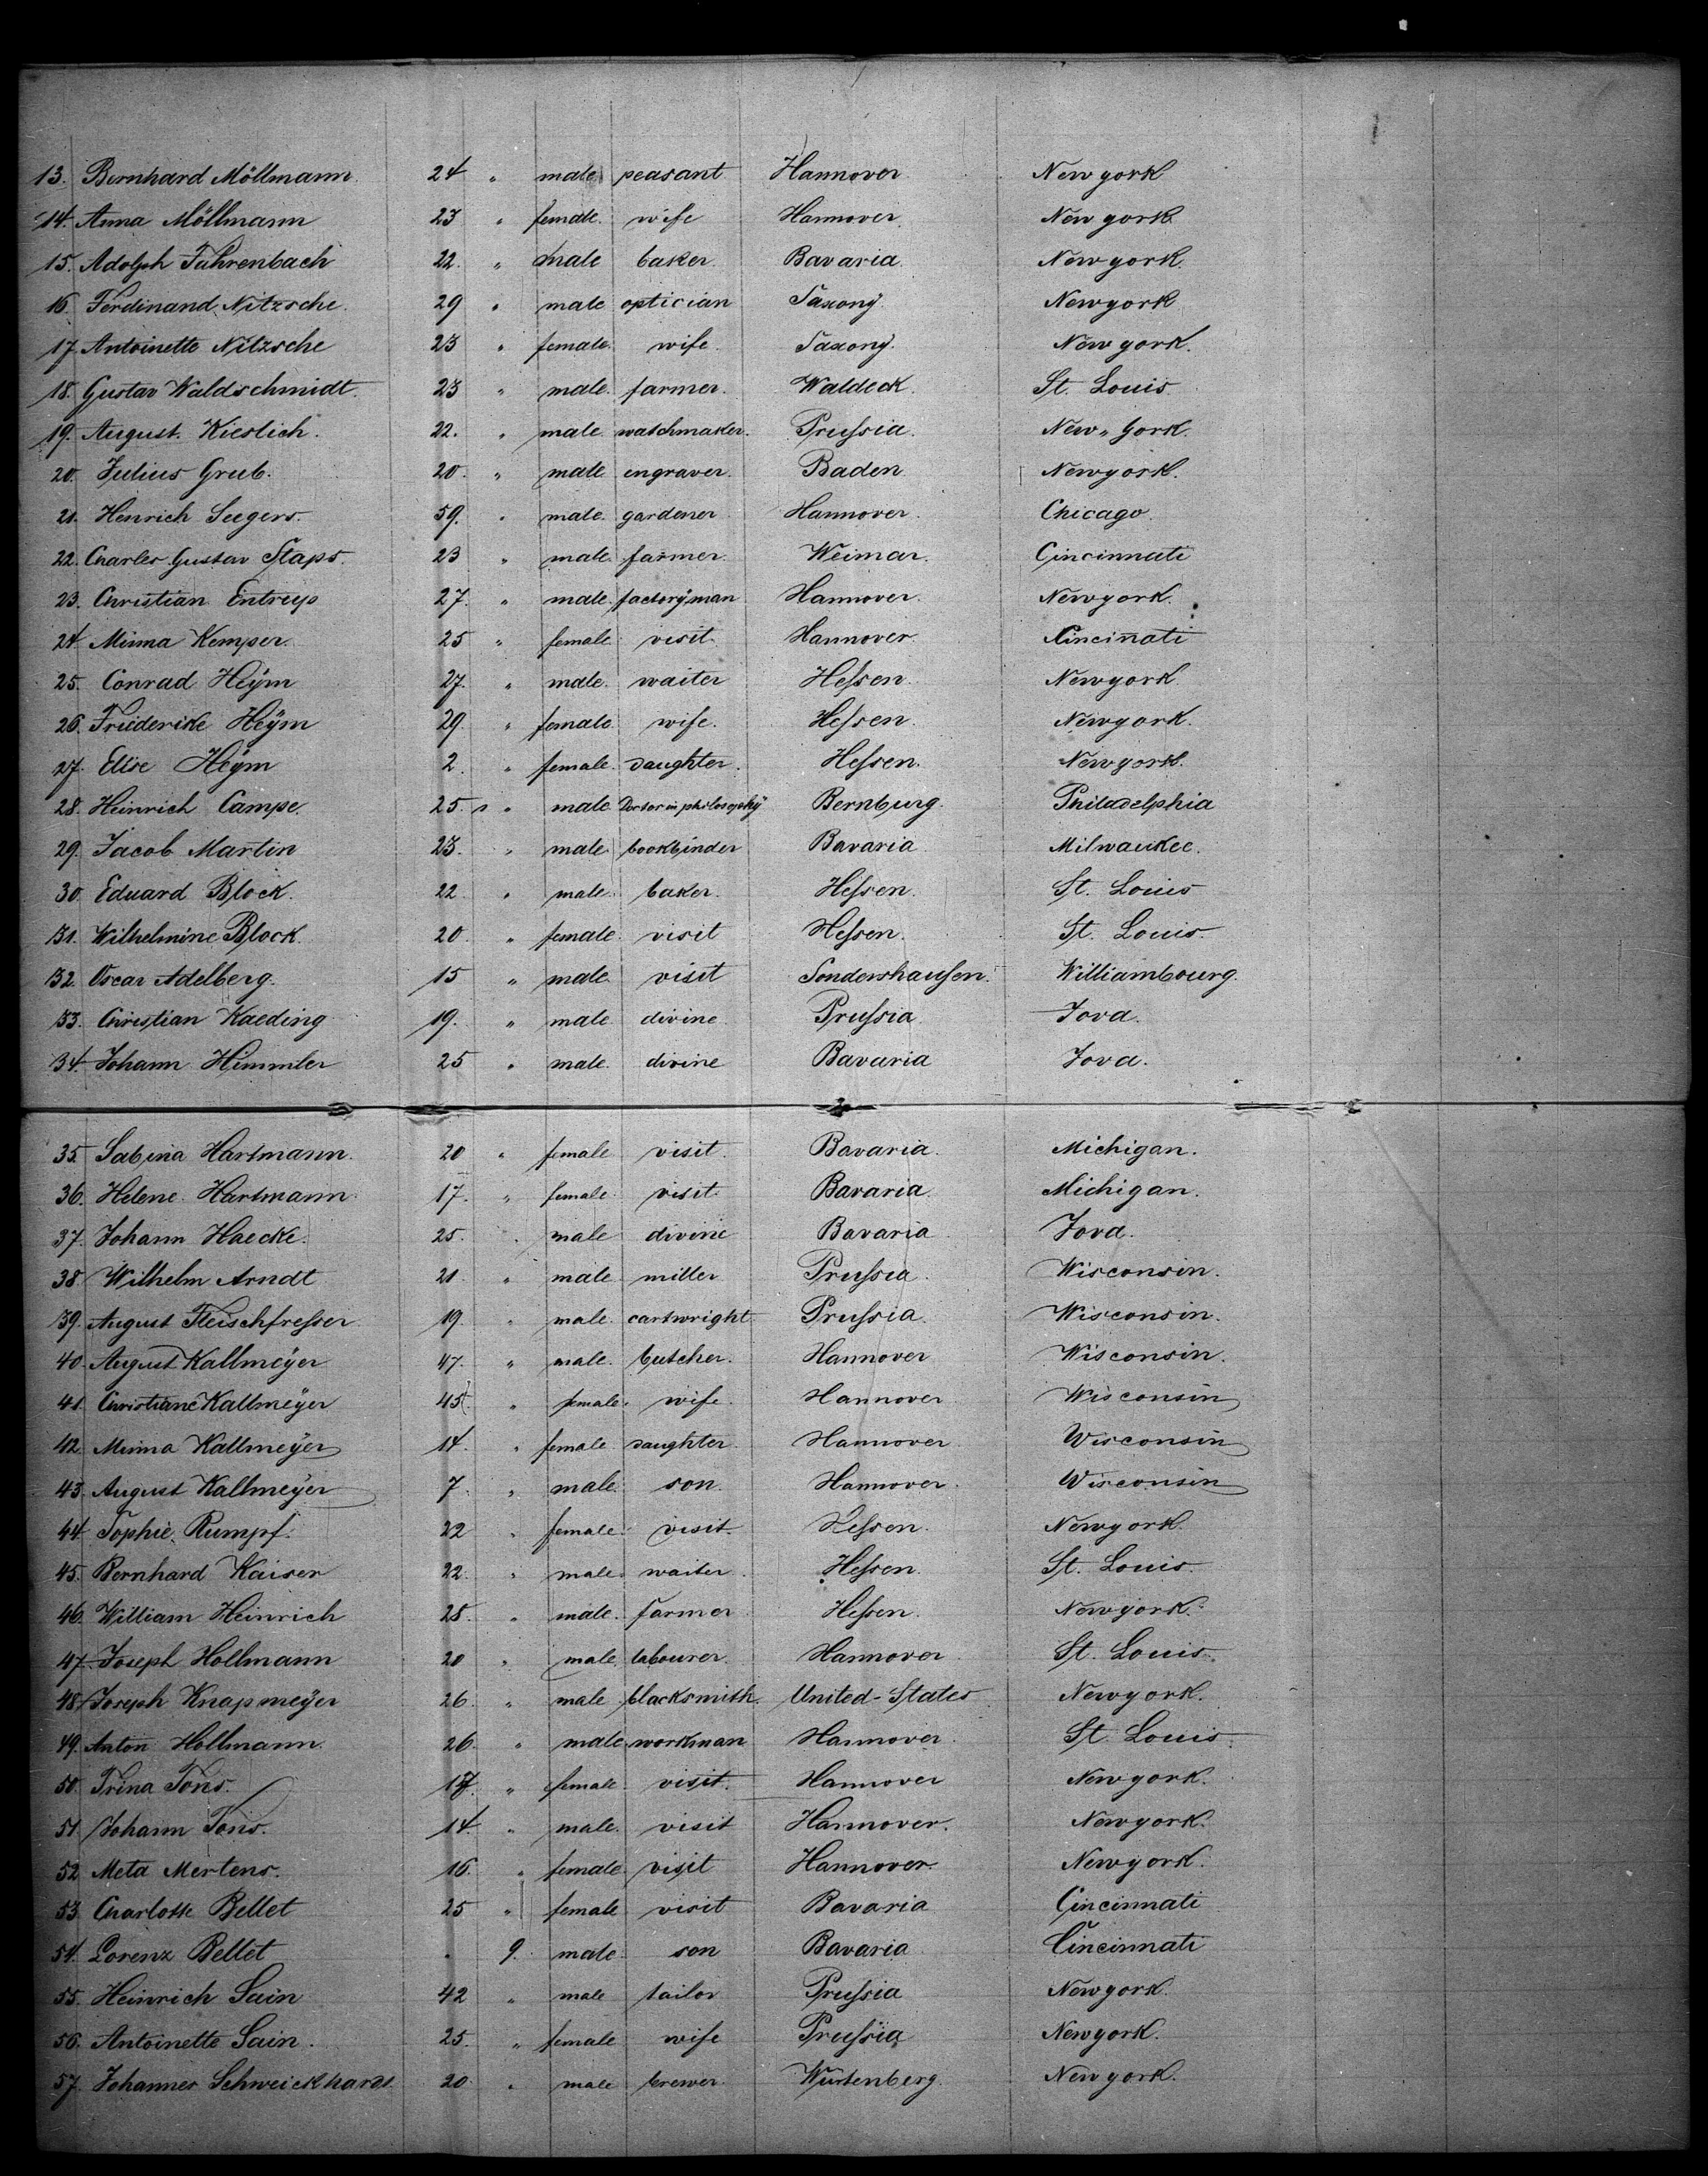 13. Bernhard Möllmann. 24 " male peasant Hannover New york
14. Anna Möllmann 23 " female. wife Hannover. New york.
15. Adolph Fahrenbach 22. " male baker Bavaria. New york.
16. Ferdinand Nitzsche. 29 " male optician Saxony. Newyork
17. Antoinette Nitzsche 23 " female. wife. Saxony. New york.
18. Gustav Waldschmidt. 23 " male. farmer. Waldeck. St. Louis
19. August. Kieslich. 22. " male watchmaker. Prussia. New-York.
20. Julius Grub. 20. " male engraver. Baden Newyork.
21. Henrich Seegers. 59. " male. gardener Hannover. Chicago.
22. Charles Gustav Staps. 23 " male. farmer. Weimar. Cincinnati
23. Christian Entrup 27. " male. factoryman Hannover. Newyork.
24. Minna Kemper. 25 " female visit. Hannover. Cincinati
25. Conrad Heÿm 27. " male. waiter Hessen. Newyork.
26. Friederike Heÿm 29. " female wife. Hessen. Newyork.
27. Elise Heÿm 2. " female. daughter. Hessen. Newyork.
28. Heinrich Campe. 25. " male Doctor in philosophÿ Bernburg. Philadelphia
29. Jacob Martin 23. " male. bookbinder Bavaria Milwaukee.
30. Eduard Block. 22. " male. baker. Hessen. St. Louis
31. Wilhelmine Block. 20. " female. visit Hessen. St. Louis.
32. Oscar Adelberg. 15 " male. visit Sondershausen. Williambourg.
33. Christian Kaeding 19. " male divine. Prussia Jova.
34. Johann Himmler 25 " male. divine Bavaria Jova.
35. Sabina Hartmann. 20 " female visit. Bavaria. Michigan.
36. Helene Hartmann. 17. " female. visit. Bavaria. Michigan.
37. Johann Haecke. 25. " male divine Bavaria Jova.
38. Wilhelm Arndt 21. " male miller Prussia. Wisconsin.
39. August Fleischfresser 19. " male. cartwright Prussia. Wisconsin.
40. August Kallmeÿer 47. " male. butcher. Hannover Wisconsin.
41. Christiane Kallmeÿer 45. " female. wife. Hannover Wisconsin
42. Minna Kallmeÿer 14. " female daughter. Hannover Wisconsin
43. August Kallmeÿer 7. " male son. Hannover. Wisconsin
44. Sophie Rumpf. 22 " female visit. Hessen. Newyork.
45. Bernhard Kaiser 22. " male. waiter. Hessen. St. Louis.
46. William Heinrich 28. " male. farmer Hessen. Newyork.
47. Joseph Hollmann 20 " male labourer. Hannover. St. Louis.
48. Joseph Knapmeÿer 26. " male blacksmith. United-States Newyork.
49. Anton Hollmann. 26. " male workman Hannover. St. Louis.
50. Trina Tons. 17. " female visit. Hannover New york.
51. Johann Tons. 14. " male. visit Hannover. New york.
52. Meta Mertens. 16. " female. visit Hannover. Newyork.
53. Charlotte Bellet 25 " female visit Bavaria Cincinnati
54. Lorenz Bellet " 9. male son Bavaria. Cincinnati
55. Heinrich Sain 42 " male tailor Prussia Newyork.
56. Antoinette Sain. 25. " female wife Prussia Newyork.
57. Johannes Schweickhardt 20. " male brewer. Würtenberg. New york.